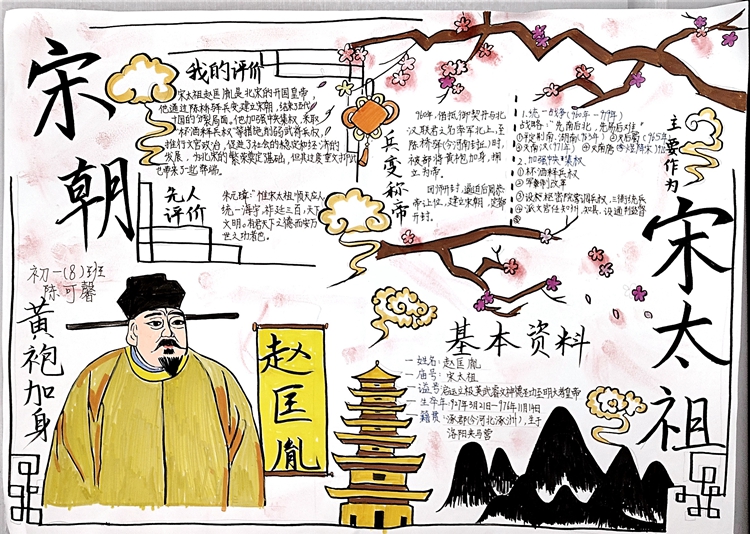 宋朝
我的评价
宋太祖赵匡胤是北宋的开国皇帝,
他通过陈桥驿兵变建立宋朝,结束了五代
十国的分裂局面。他加强中央集权,采取
“杯酒释兵权”等措施,削弱武将兵权,
推行文官政治,促进了社会的稳定和经济的
发展,为北宋的繁荣奠定基础,但其过度重文抑武
也带来了一些弊端。
先人
评价
朱元璋:“惟宋太祖顺天应人
统一海宇,祚延三百,天下
文明。有君天下之德而安万
世之功者也。
兵变称帝
960年,借抵御契丹与北
汉联名之为率军北上,至
陈桥驿(今河南封丘)时,
被部将黄袍加身,拥
立为帝。
回师开封,逼迫后周恭
帝让位,建立宋朝,定都
开封。
主要作为
1.统一战争(963年—979年)
战略:“先南后北,先易后难”
2.加强中央集权
①杯酒释兵权
②军事制改革
③设枢密院掌调兵权,三衙统兵
④派文官任知州、知县,设通判监督
宋太祖
初一(8)班
陈可馨
黄袍加身
赵匡胤
基本资料
一姓名:赵匡胤
一庙号:宋太祖
一谥号:启运立极英武睿文神德圣功至明大孝皇帝
一生卒年:927年3月21日—976年11月14日
一籍贯:涿郡(今河北涿州),生于
洛阳夹马营